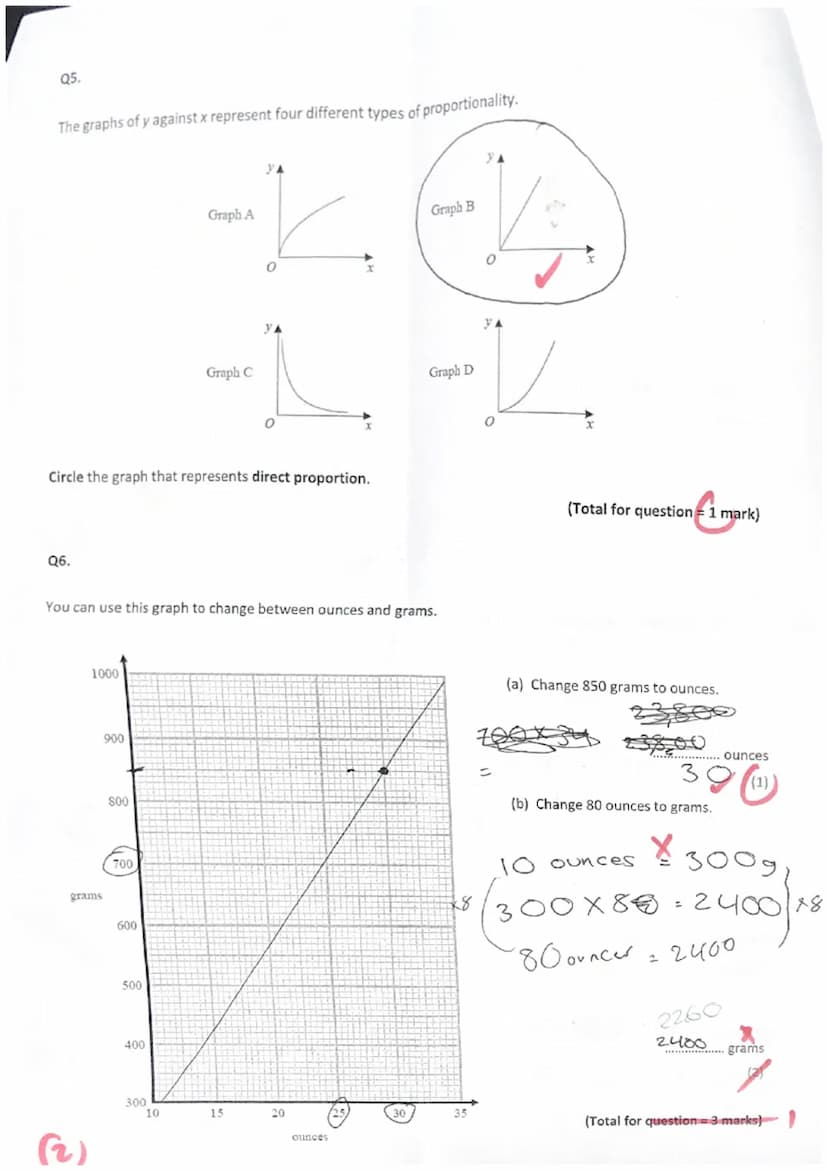 Q5.
The graphs of y against x represent four different types of proportionality.
y
y
Graph A
Graph B
O
x
O
x
y
y
Graph C
Graph D
O
x
O
x
Circle the graph that represents direct proportion.
(Total for question = 1 mark)
Q6.
You can use this graph to change between ounces and grams.
1000
900
800
700
grams
600
500
400
300
10
15
20
25
30
35
ounces
(a) Change 850 grams to ounces.
23,800
700 x 34
23800
ounces
=
30
(1)
(b) Change 80 ounces to grams.
10 ounces = 300g
x8
300 x 80 = 2400
x8
80 ounces = 2400
2260
2400 grams
(2)
(Total for question = 3 marks) 1
(2)